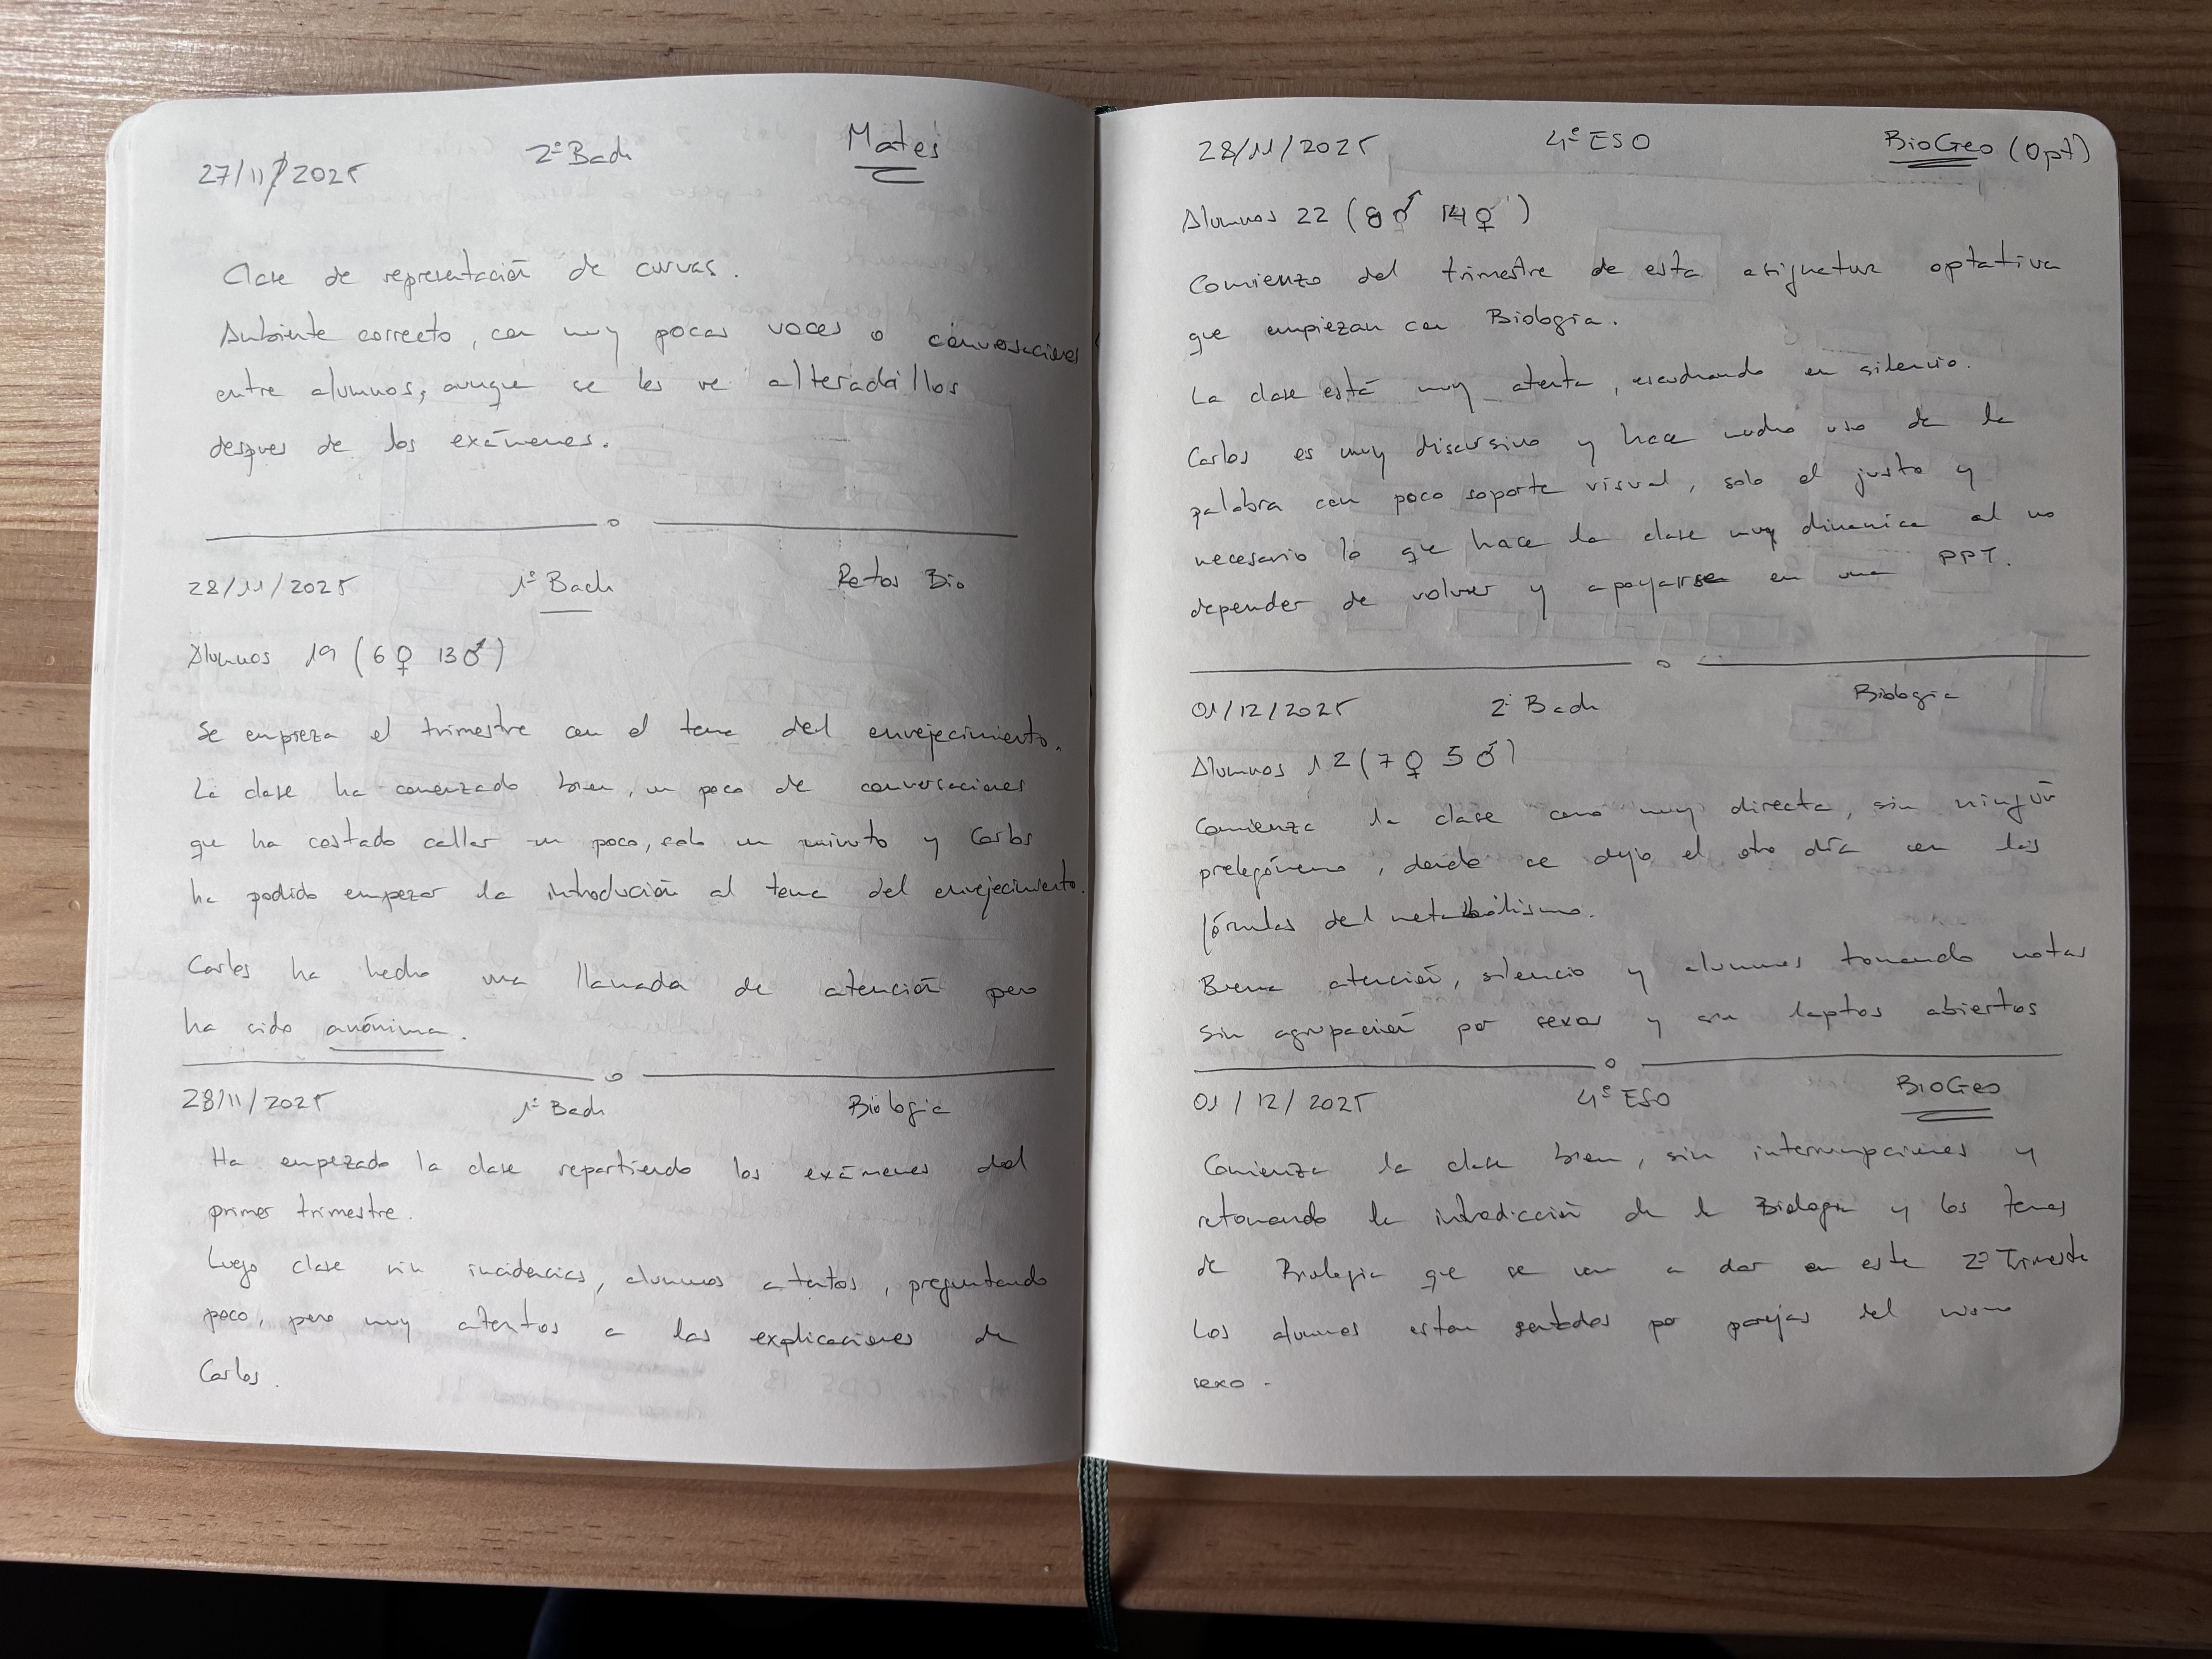 27/11/2025 2º Bach Mates
Clase de representación de curvas.
Ambiente correcto, con muy pocas voces o conversaciones
entre alumnos, aunque se les ve alteradillos
despues de los exámenes.
28/11/2025 1º Bach Retos Bio
Alumnos 19 (6♀ 13♂)
Se empieza el trimestre con el tema del envejecimiento.
La clase ha comenzado bien, un poco de conversaciones
que ha costado callar un poco, solo un minuto y Carlos
ha podido empezar la introdución al tema del envejecimiento.
Carlos ha hecho una llamada de atención pero
ha sido anónima.
28/11/2025 1º Bach Biología
Ha empezado la clase repartiendo los exámenes del
primer trimestre.
Luego clase sin incidencias, alumnos atentos, preguntando
poco, pero muy atentos a las explicaciones de
Carlos.
28/11/2025 4º ESO BioGeo (Opt)
Alumnos 22 (8♂ 14♀)
Comienzo del trimestre de esta asignatura optativa
que empiezan con Biología.
La clase está muy atenta, escuchando en silencio.
Carlos es muy discursivo y hace mucho uso de la
palabra con poco soporte visual, solo el justo y
necesario lo que hace la clase muy dinamica al no
depender de volver y apoyarse en una PPT.
01/12/2025 2º Bach Biologia
Alumnos 12 (7♀ 5♂)
Comienza la clase como muy directa, sin ningún
prelegómeno, donde se dejo el otro día con las
fórmulas del metabolismo.
Buena atención, silencio y alumnos tomando notas
sin agrupación por sexos y con laptos abiertos
01/12/2025 4º ESO BioGeo
Comienza la clase bien, sin interrupciones y
retomando la introdicción de la Biologia y los temas
de Biologia que se van a dar en este 2º Trimestre
Los alumnos estan sentados por parejas del mismo
sexo.